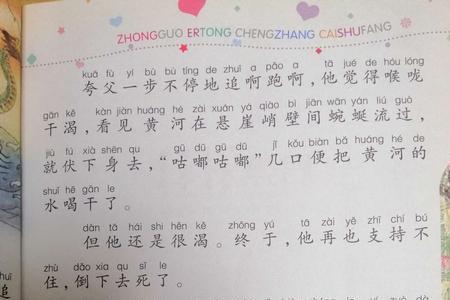 ZHONGGUO ERTONG CHENGZHANG CAISHUFANG
kuā fù yí bù bù tíng de zhuī a pǎo a tā jué de hóu lóng
夸父一步不停地追啊跑啊,他觉得喉咙
gān kě kàn jiàn huáng hé zài xuán yá qiào bì jiān wān yán liú guò
干渴,看见黄河在悬崖峭壁间蜿蜒流过,
jiù fú xià shēn qu gū dū gū dū jǐ kǒu biàn bǎ huáng hé de
就伏下身去,“咕嘟咕嘟”几口便把黄河的
shuǐ hē gān le
水喝干了。
dàn tā hái shi hěn kě zhōng yú tā zài yě zhī chí bú
但他还是很渴。终于,他再也支持不
zhù dǎo xia qu sǐ le
住,倒下去死了。